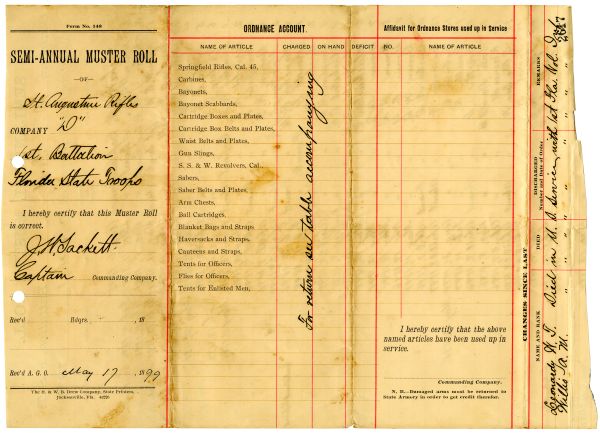 Form No. 148
SEMI-ANNUAL MUSTER ROLL
—OF—
St. Augustine Rifles
COMPANY "D"
1st. Battalion
Florida State Troops
I hereby certify that this Muster Roll
is correct.
J. W. Sackett.
Captain Commanding Company.
Rec'd Hdqrs. , 18
Rec'd A. G. O. May 17 , 1899
The H. & W. B. Drew Company, State Printers,
Jacksonville, Fla.
ORDNANCE ACCOUNT.
NAME OF ARTICLE CHARGED ON HAND DEFICIT
Springfield Rifles, Cal. 45,
Carbines,
Bayonets,
Bayonet Scabbards,
Cartridge Boxes and Plates,
Cartridge Box Belts and Plates,
Waist Belts and Plates,
Gun Slings,
S. S. & W. Revolvers, Cal.,
Sabers,
Saber Belts and Plates,
Arm Chests,
Ball Cartridges,
Blanket Bags and Straps
Haversacks and Straps,
Canteens and Straps,
Tents for Officers,
Flies for Officers,
Tents for Enlisted Men,
For return see table accompanying
Affidavit for Ordnance Stores used up in Service
NO. NAME OF ARTICLE
I hereby certify that the above
named articles have been used up in
service.
Commanding Company.
N. B.—Damaged arms must be returned to
State Armory in order to get credit therefor.
CHANGES SINCE LAST
NAME AND RANK DIED DISCHARGED Number and Date of Order REMARKS
Leonardy W. J. Died in U. S. Service with 1st Fla. Vol. Inf.
Willis Ja. M. " " " " " " " "